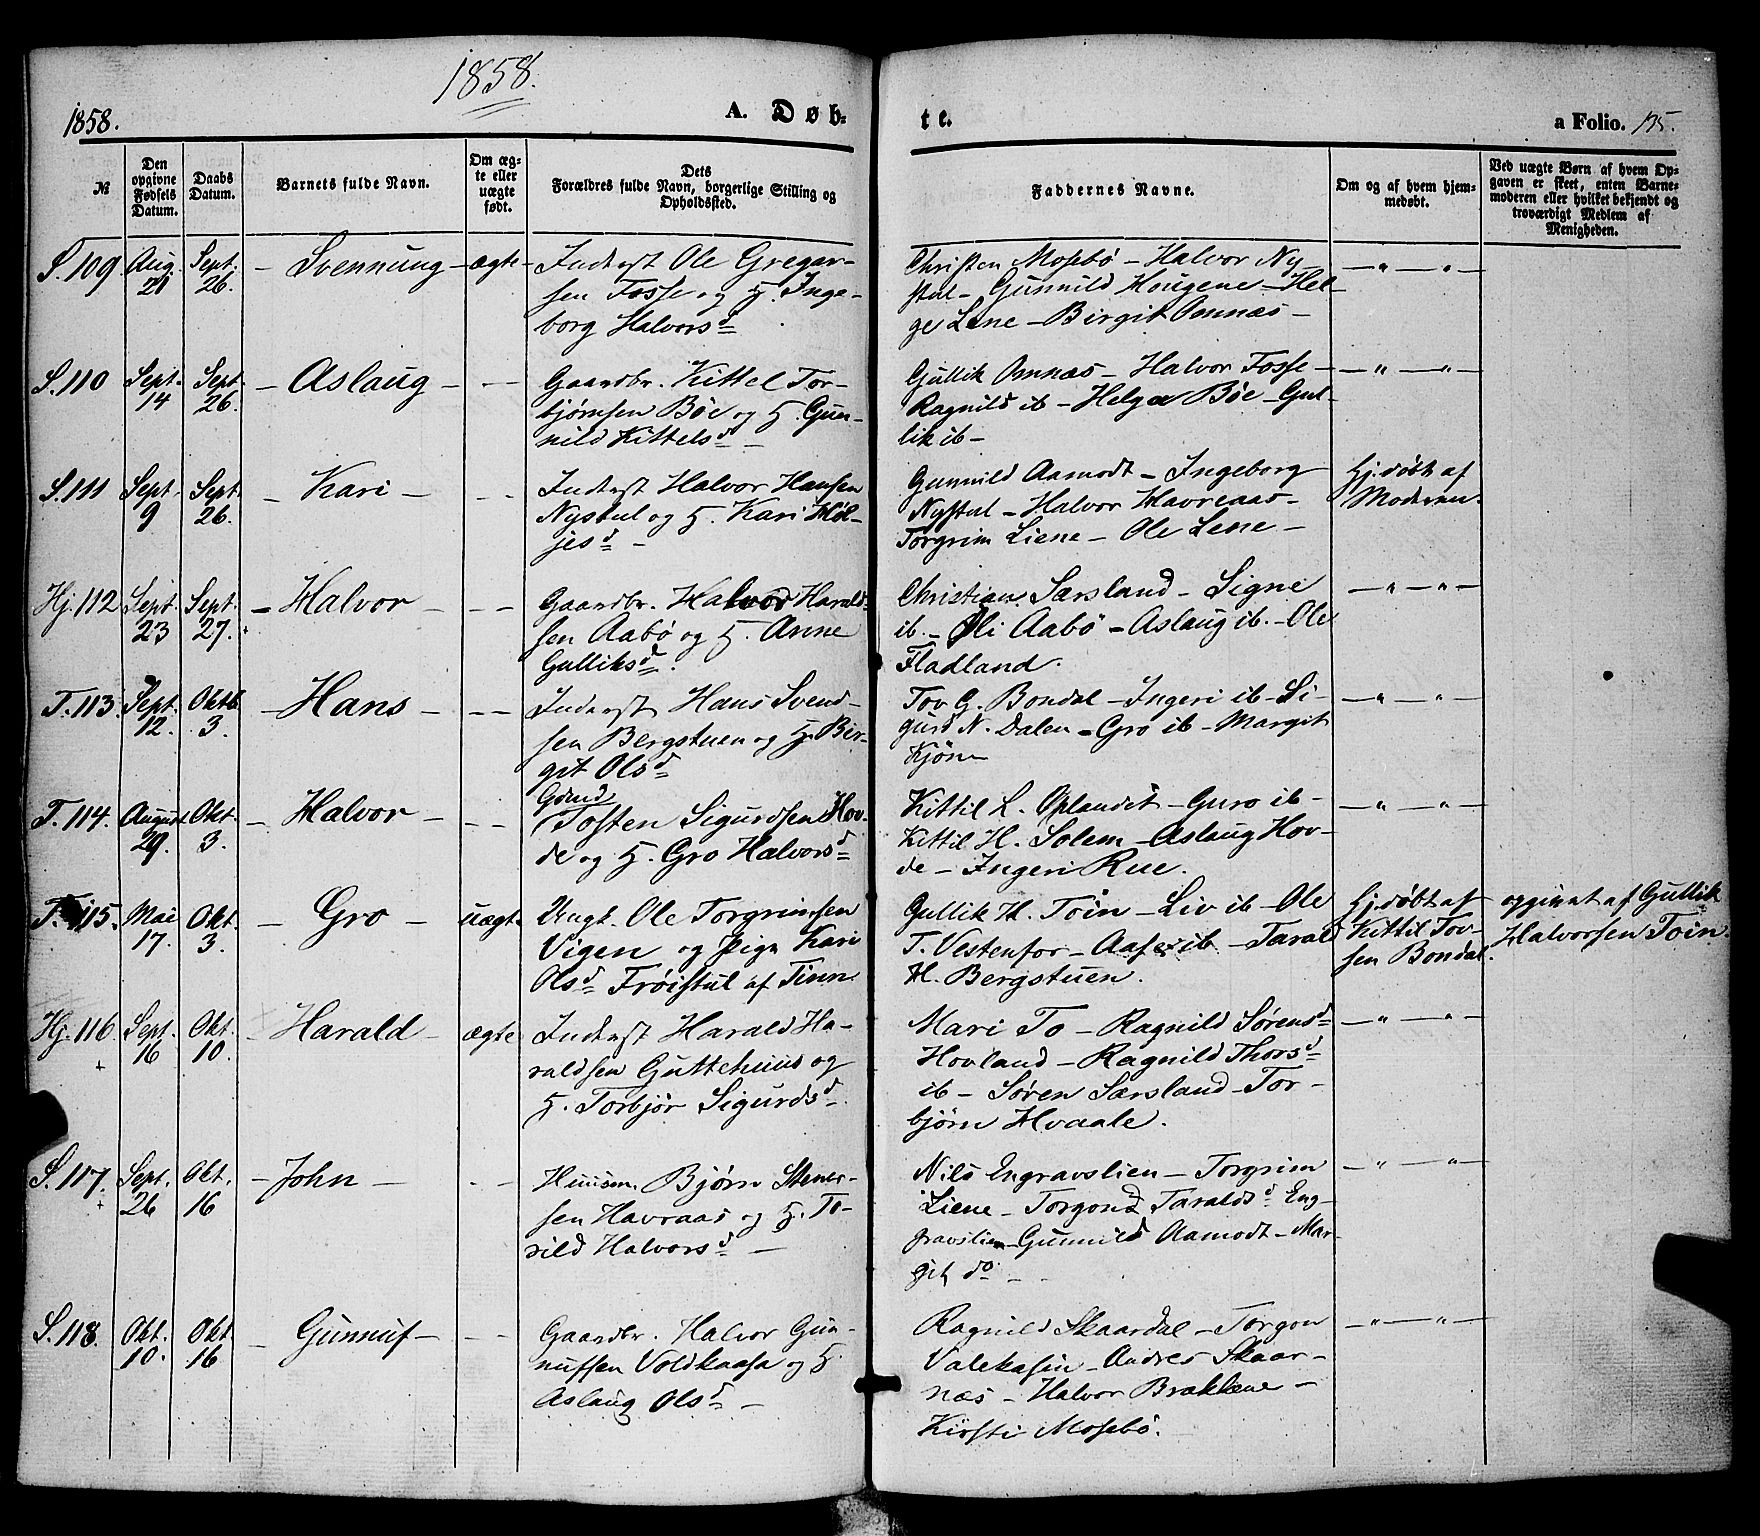 1858.
1858.
A. Døb-
te.
a Folio. 135.
№
Den
opgivne
Fødsels
Datum.
Daabs
Datum.
Barnets fulde Navn.
Om æg-
te eller
uægte
født.
Dets
Forældres fulde Navn, borgerlige Stilling og
Opholdssted.
Faddernes Navne.
Om og af hvem hjem-
medøbt.
Ved uægte Børn af hvem Op-
gaven er skeet, enten Barne-
moderen eller hvilket bekjendt og
troværdigt Medlem af
Menigheden.
S. 109 Aug. 21 Sept. 26. - Svennung - ægte -
Inderst Ole Gregar-
sen Fosse og H. Inge-
borg Halvorsd
Christen Mosebö - Halvor Ny-
stul - Gunnild Hougene - Hel-
ge Lene - Birgit Omnæs -
— " — " —
S. 110 Sept. 14 Sept. 26. - Aslaug - - -
Gaardbr. Kittel Tor-
bjørnsen Bøe og H. Gun-
nild Kittelsd -
Gullik Omnæs - Halvor Fosse -
Ragnild ib - Helga Bøe - Gul-
lik ib -
— " — " —
S. 111 Sept. 9 Sept. 26. - Kari - - -
Inderst Halvor Hansen
Nystul og H. Kari Høl-
jesd -
Gunnild Aamodt - Ingeborg
Nystul - Halvor Havreaas -
Torgrim Liene - Ole Lene -
Hj. döbt af
Moderen.
Hj. 112 Sept. 23 Sept. 27. - Halvor - - -
Gaardbr. Halvor Harald-
sen Aabö og H. Anne
Gulliksd.
Christian Sarsland - Signe
ib. - Oli Aabö - Aslaug ib. - Ole
Fladland.
— " — " —
T. 113. Sept. 12. Oktb. 3. - Hans - - -
Inderst Hans Svend-
sen Bergstuen og H. Bir-
git Olsd
Tov G. Bondal - Ingeri ib - Si-
gurd N. Dalen - Gro ib - Margit
Kjön -
— " — " —
T. 114. August 29. Okt. 3. - Halvor - - -
Gdmd
Tosten Sigurdsen Hov-
de og H. Gro Halvorsd
Kittil L. Oplandet - Guro ib -
Kittil H. Solem - Aslaug Hov-
de - Ingeri Rue.
— " — " —
T. 115. Mai 17. Okt. 3. - Gro - uægt.
Ungk. Ole Torgrimsen
Vigen og Pige Kari
Olsd Frøistul af Tinn
Gullik H. Toin - Liv ib - Ole
T. Vestenfor - Aase ib - Tarald
H. Bergstuen.
Hj. döbt af
Kittil Tov-
sen Bondal.
opgivet af Gullik
Halvorsen Toin.
Hj. 116. Sept. 16 Okt. 10. - Harald - ægte
Inderst Harald Ha-
raldsen Guttehuus og
H. Torbjør Sigurdsd.
Mari To - Ragnild Sørensd
Hovland - Ragnild Thorsd
ib - Søren Sarsland - Tor-
bjørn Hvaale.
— " — " —
S. 117. Sept. 26 Okt. 16 - John - - -
Huusm. Bjørn Stener-
sen Havraas og H. To-
rild Halvorsd -
Nils Engravslien - Torgrim
Liene - Torgond Taraldsd Eng-
gravslien - Gunnild Aamodt - Mar-
git do -
— " — " —
S. 118. Okt. 10. Okt. 16 - Gunnuf - - -
Gaardbr. Halvor Gun-
nufsen Voldkaasa og H.
Aslaug Olsd -
Ragnild Skaardal - Torgon
Valekasin - Andres Skaar-
næs - Halvor Brækkene -
Kirsti Mosebö.
— " — " —